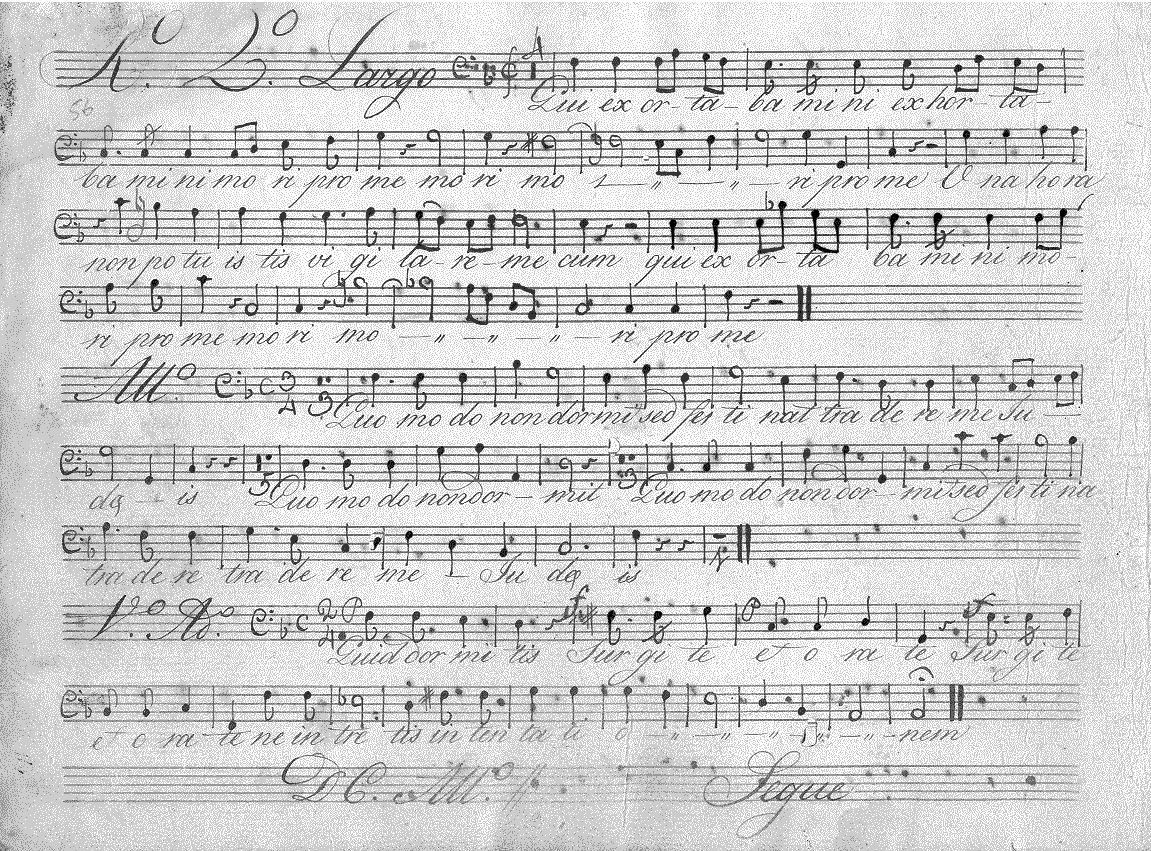 R.º 2.º Largo
56
Qui ex or- ta- ba mi ni exhor- ta-
ba mi ni mo ri pro me mo ri mo - „ - „ - ri pro me Una hora
non po tu is tis vi gi la- re- me cum qui ex or- ta ba mi ni mo-
ri pro me mo ri mo - „ - „ - „ - ri pro me
All.º 3 4 3
Quo mo do non dormit sed fes ti nat tra de re me Ju -
dæ - is 5 Quo mo do non dor- mit 3 Quo mo do non dor- mit sed fes ti na
tra de re tra de re me - Ju dæ is
V.º Ad.º 2 4 P f P f
Quid dor mi tis Sur gi te et o ra te Sur gi te
et o ra te ne in tre tis in ten ta ti o - „ - „ - „ - „ - nem
D C. All.º Segue